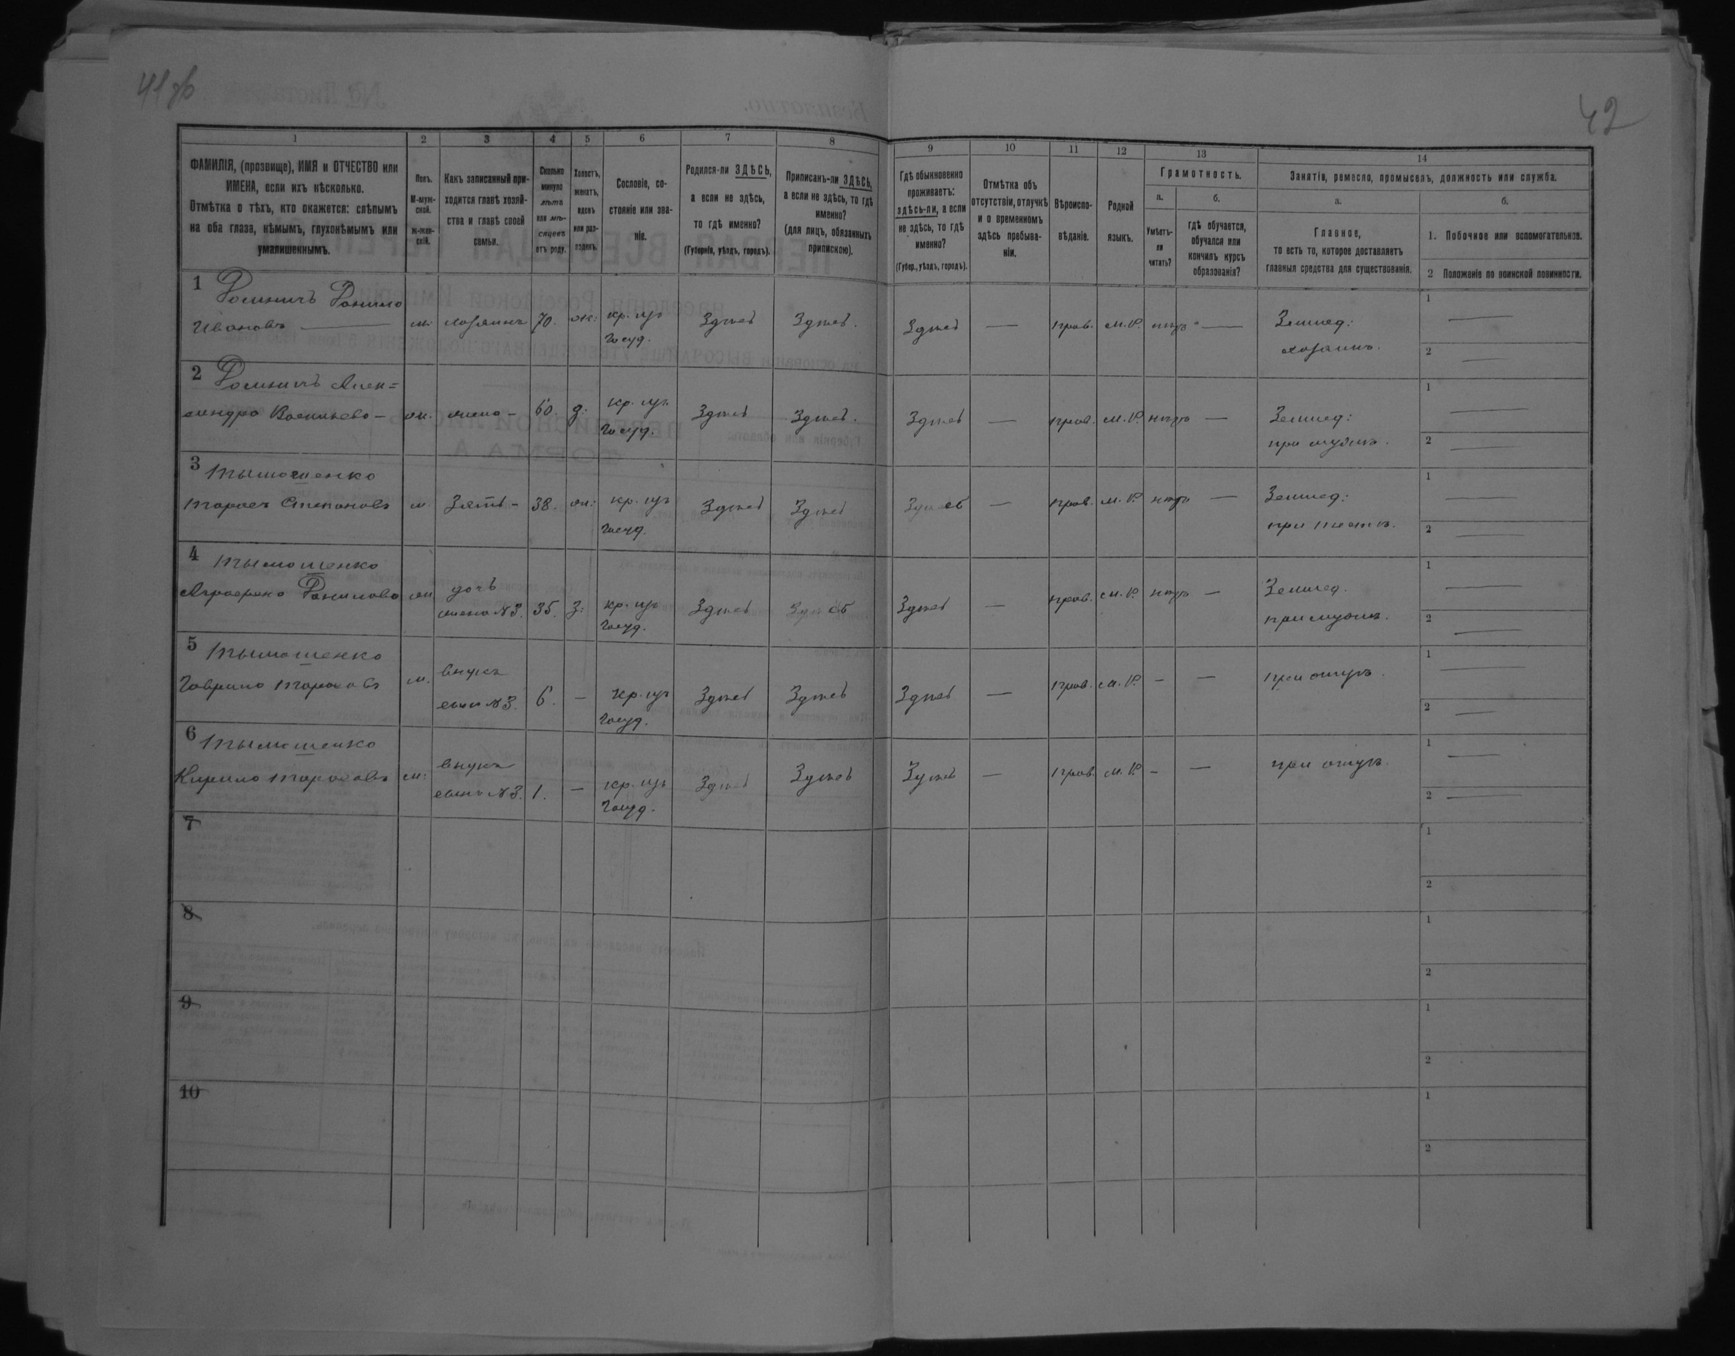 41 зв
42
1 2 3 4 5 6 7 8 9 10 11 12 13 14
ФАМИЛІЯ, (прозвище), ИМЯ и ОТЧЕСТВО или
ИМЕНА, если ихъ нѣсколько.
Отмѣтка о тѣхъ, кто окажется: слѣпымъ
на оба глаза, нѣмымъ, глухонѣмымъ или
умалишеннымъ.
Полъ.
М-муж-
ской.
ж-жен-
скій.
Какъ записанный при-
ходится главѣ хозяй-
ства и главѣ своей
семьи.
Сколько
минуло
лѣтъ
или мѣ-
сяцевъ
отъ роду.
Холостъ,
женатъ,
вдовъ
или раз-
веденъ.
Сословіе, со-
стояніе или зва-
ніе.
Родился-ли ЗДѢСЬ,
а если не здѣсь,
то гдѣ именно?
(Губернія, уѣздъ, городъ).
Приписанъ-ли ЗДѢСЬ,
а если не здѣсь, то гдѣ
именно?
(для лицъ, обязанныхъ
припискою).
Гдѣ обыкновенно
проживаетъ:
здѣсь-ли, а если
не здѣсь, то гдѣ
именно?
(Губер., уѣздъ, городъ).
Отмѣтка объ
отсутствіи, отлучкѣ
и о временномъ
здѣсь пребыва-
ніи.
Вѣроиспо-
вѣданіе.
Родной
языкъ.
Грамотность.
а.
Умѣетъ-
ли
читать?
б.
гдѣ обучается,
обучался или
кончилъ курсъ
образованія?
Занятіе, ремесло, промыселъ, должность или служба.
а.
Главное,
то есть то, которое доставляетъ
главныя средства для существованія.
б.
1. Побочное или вспомогательное.
2 Положеніе по воинской повинности.
1 Данило
Ивановъ — м. хозяинъ 70. кр. изъ Здѣсь Здѣсь. Здѣсь — прав. м.Р. нѣтъ — Землед: 1 —
госуд. хозяинъ. 2 —
2 Алек=
сандра Васильева — жена — 60 кр. изъ Здѣсь Здѣсь. Здѣсь — прав. м.Р. нѣтъ — Землед: 1 —
госуд. при мужѣ. 2 —
3 Тымошенко
Тарасъ Степановъ м. Зять — 38. кр. изъ Здѣсь Здѣсь Здѣсь — прав. м.Р. нѣтъ — Землед: 1 —
госуд. при тестѣ. 2 —
4 Тымошенко
Данилова дочь
жена №3. 35. кр. изъ Здѣсь Здѣсь Здѣсь — прав. м.Р. нѣтъ — Землед. 1 —
госуд. при мужѣ. 2 —
5 Тымошенко
Гаврило Тарасовъ м. внукъ
сынъ №3. 6. — кр. изъ Здѣсь Здѣсь Здѣсь — прав. м.Р. — — при отцѣ. 1 —
госуд. 2 —
6 Тымошенко
Кирило Тарасовъ м: внукъ
сынъ №3. 1. — кр. изъ Здѣсь Здѣсь Здѣсь — прав. м.Р. — — при отцѣ. 1 —
госуд. 2 —
7 1
2
8 1
2
9 1
2
10 1
2